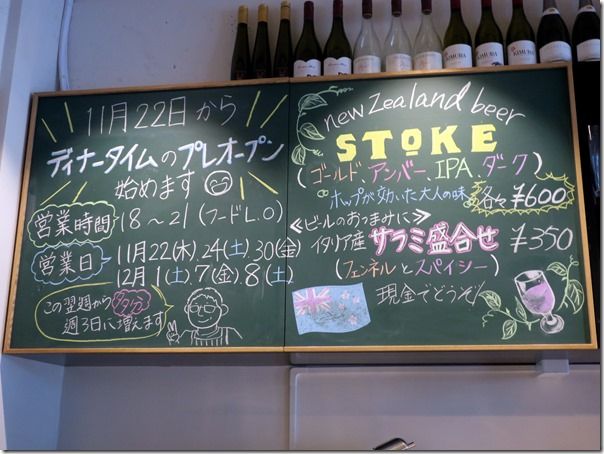 11月22日から
ディナータイムのプレオープン
始めます
営業時間 18～21 (フードL.O)
営業日 11月22(木).24(土).30(金)
12月1(土).7(金).8(土)
この翌週から
週3日に増えます
new Zealand beer
STOKE
(ゴールド、アンバー、IPA、ダーク)
ホップが効いた大人の味 各々¥600
≪ビールのおつまみに≫
イタリア産 サラミ盛合せ ¥350
(フェンネルとスパイシー)
現金でどうぞ!